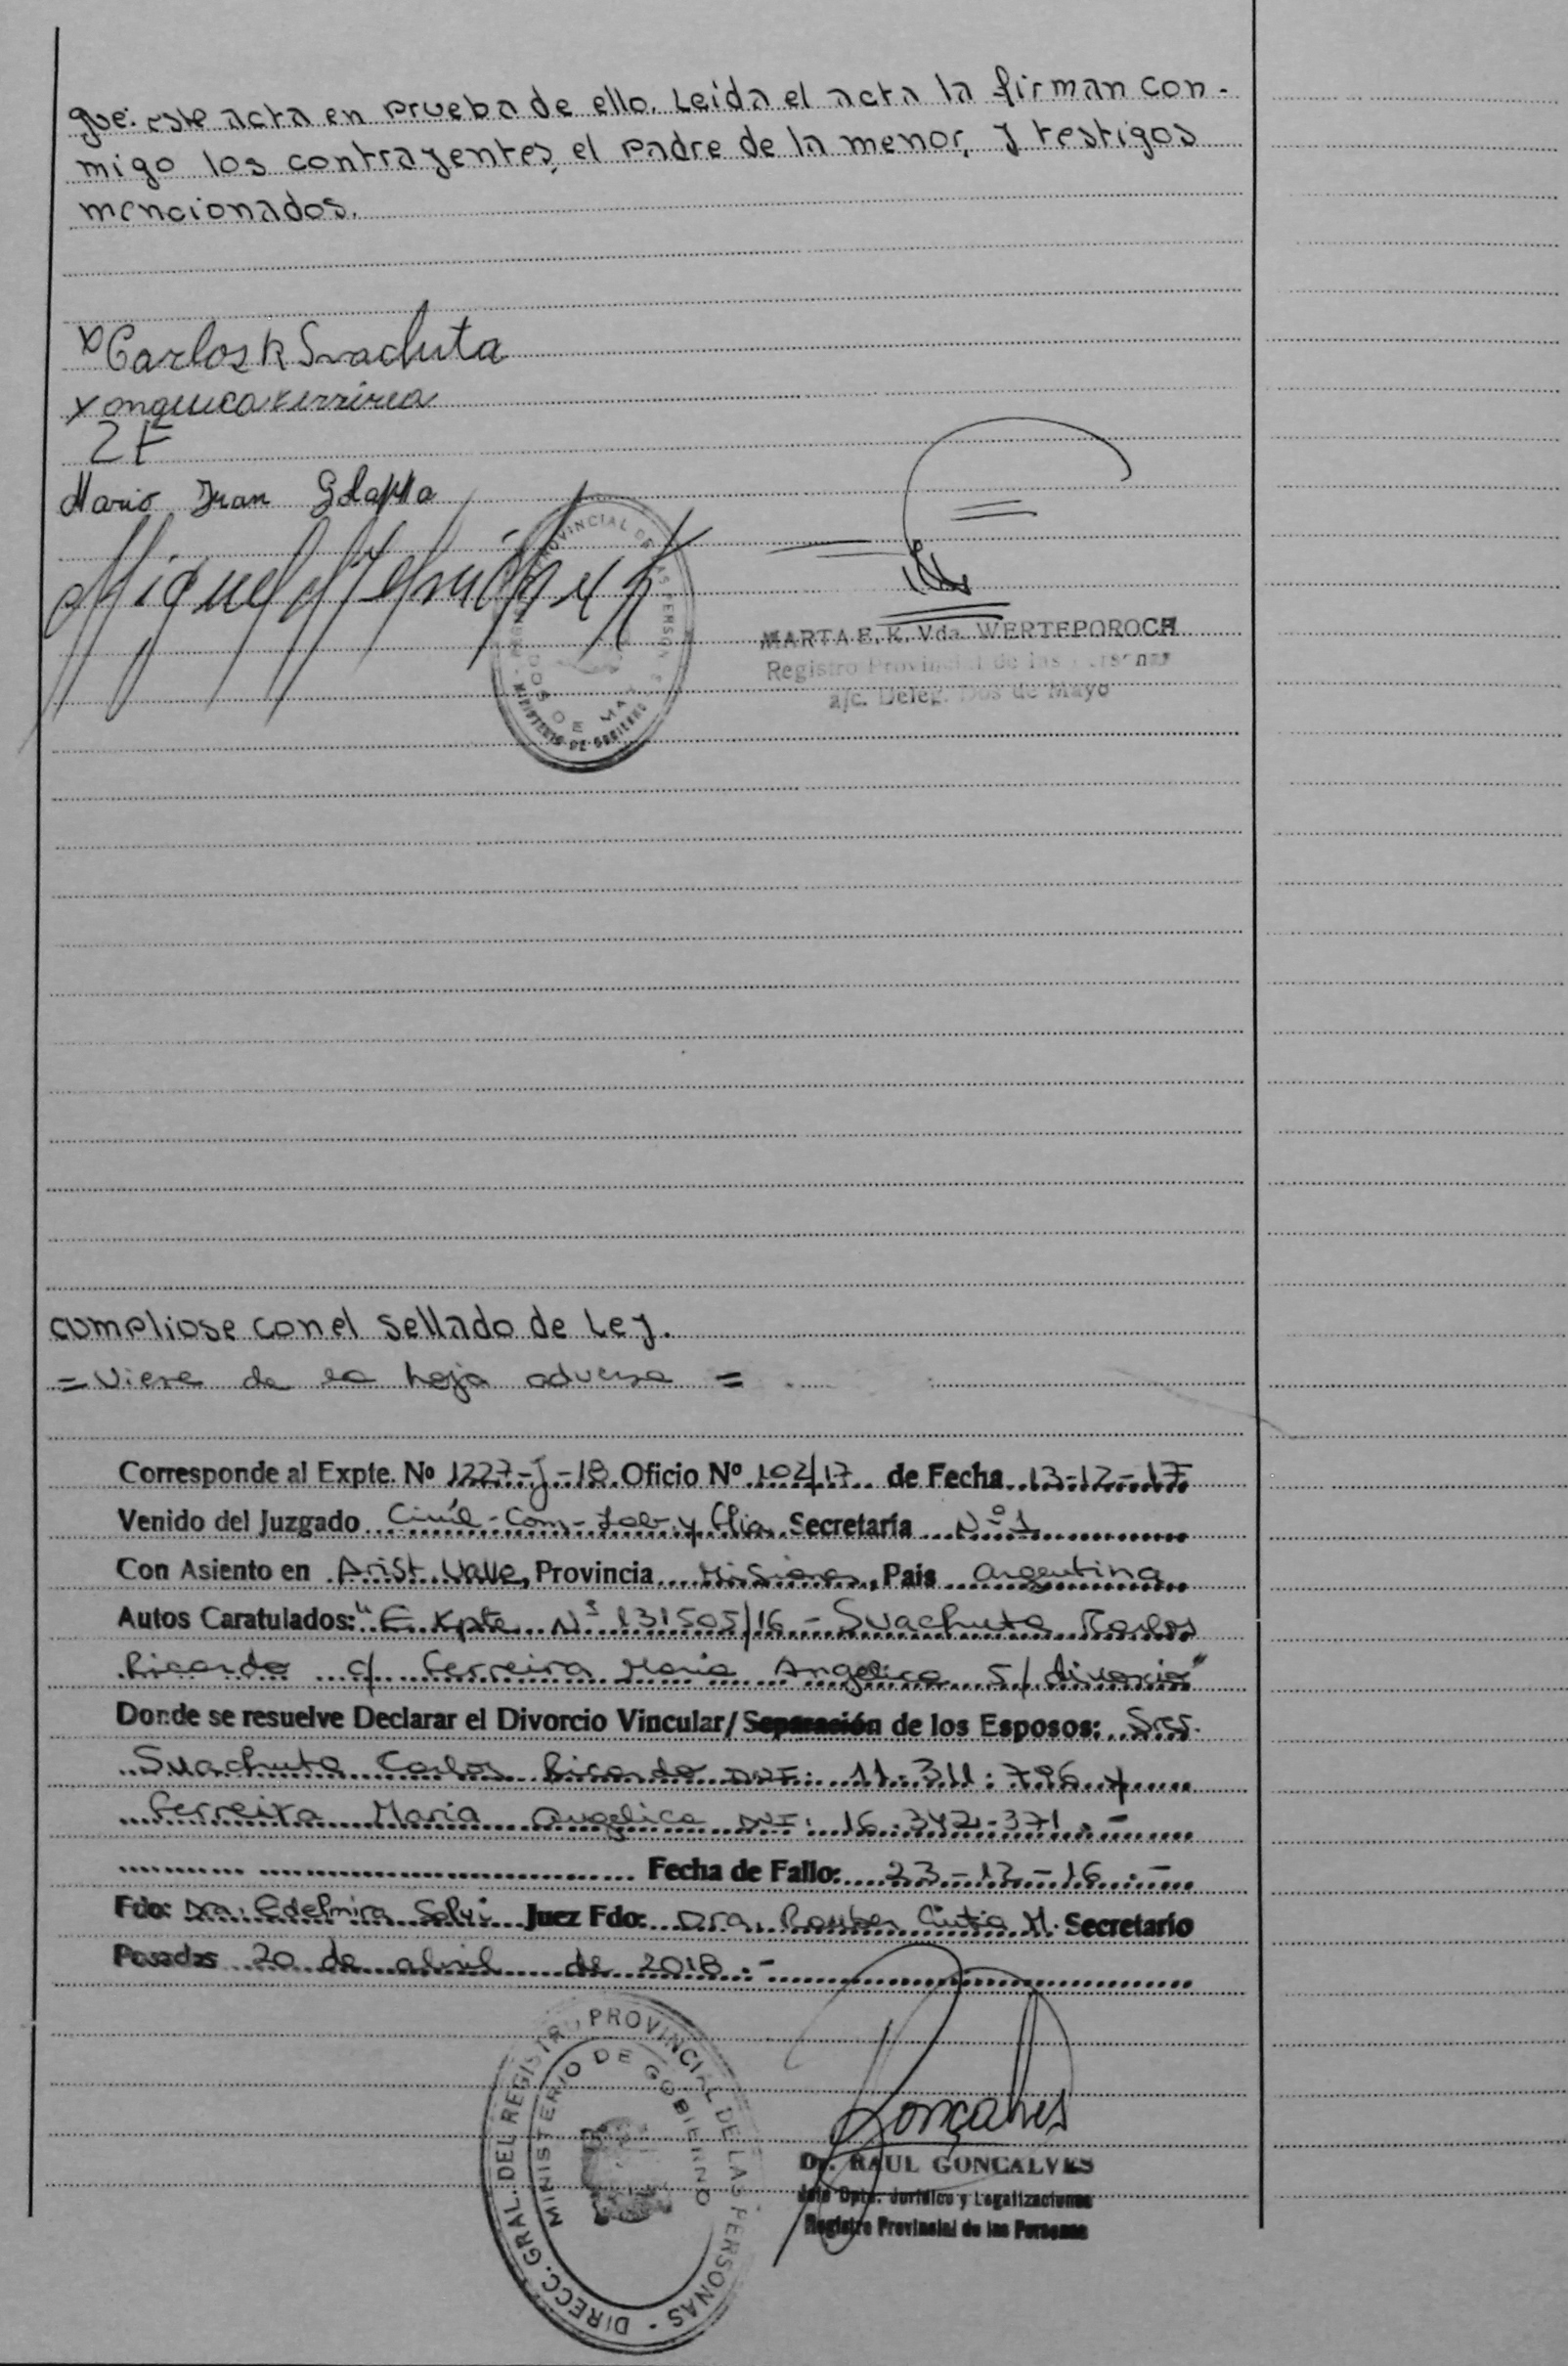 que. este acta en prueba de ello. Leida el acta la firman con-
migo los contrayentes, el padre de la menor, y testigos
mencionados.
x Carlos R Svachuta
x
2F
Mario Juan
Miguel
PROVINCIAL DE LAS PERSONAS
DOS DE MAYO
MINISTERIO DE GOBIERNO
MARTA E. K. Vda. WERTEPOROCH
Registro Provincial de las Personas
a/c. Deleg. Dos de Mayo
cumpliose con el sellado de Ley.
= Viene de la hoja adversa =
Corresponde al Expte. Nº 1227-J-18 Oficio Nº 102/17 de Fecha 13-12-17
Venido del Juzgado Civil-Com-Lab. y Flia. Secretaría Nº 1
Con Asiento en Arist. Valle, Provincia Misiones, Pais Argentina
Autos Caratulados: "Expte Nº 131505/16 - Svachuta Carlos
Ricardo c/ Ferreira Maria Angelica s/ divorcio"
Donde se resuelve Declarar el Divorcio Vincular/Separación de los Esposos: Srs.
Svachuta Carlos Ricardo DNI: 11.311.796 y
Ferreira Maria Angelica DNI: 16.342.371.-
Fecha de Fallo: 23-12-16.-
Fdo: Dra. Edelmira Juez Fdo: Dra. Cintia M. Secretario
Posadas 20 de abril de 2018.-
DIRECC. GRAL. DEL REGISTRO PROVINCIAL DE LAS PERSONAS
MINISTERIO DE GOBIERNO
Goncalves
Dr. RAUL GONCALVES
Jefe Dpto. Jurídico y Legalizaciones
Registro Provincial de las Personas